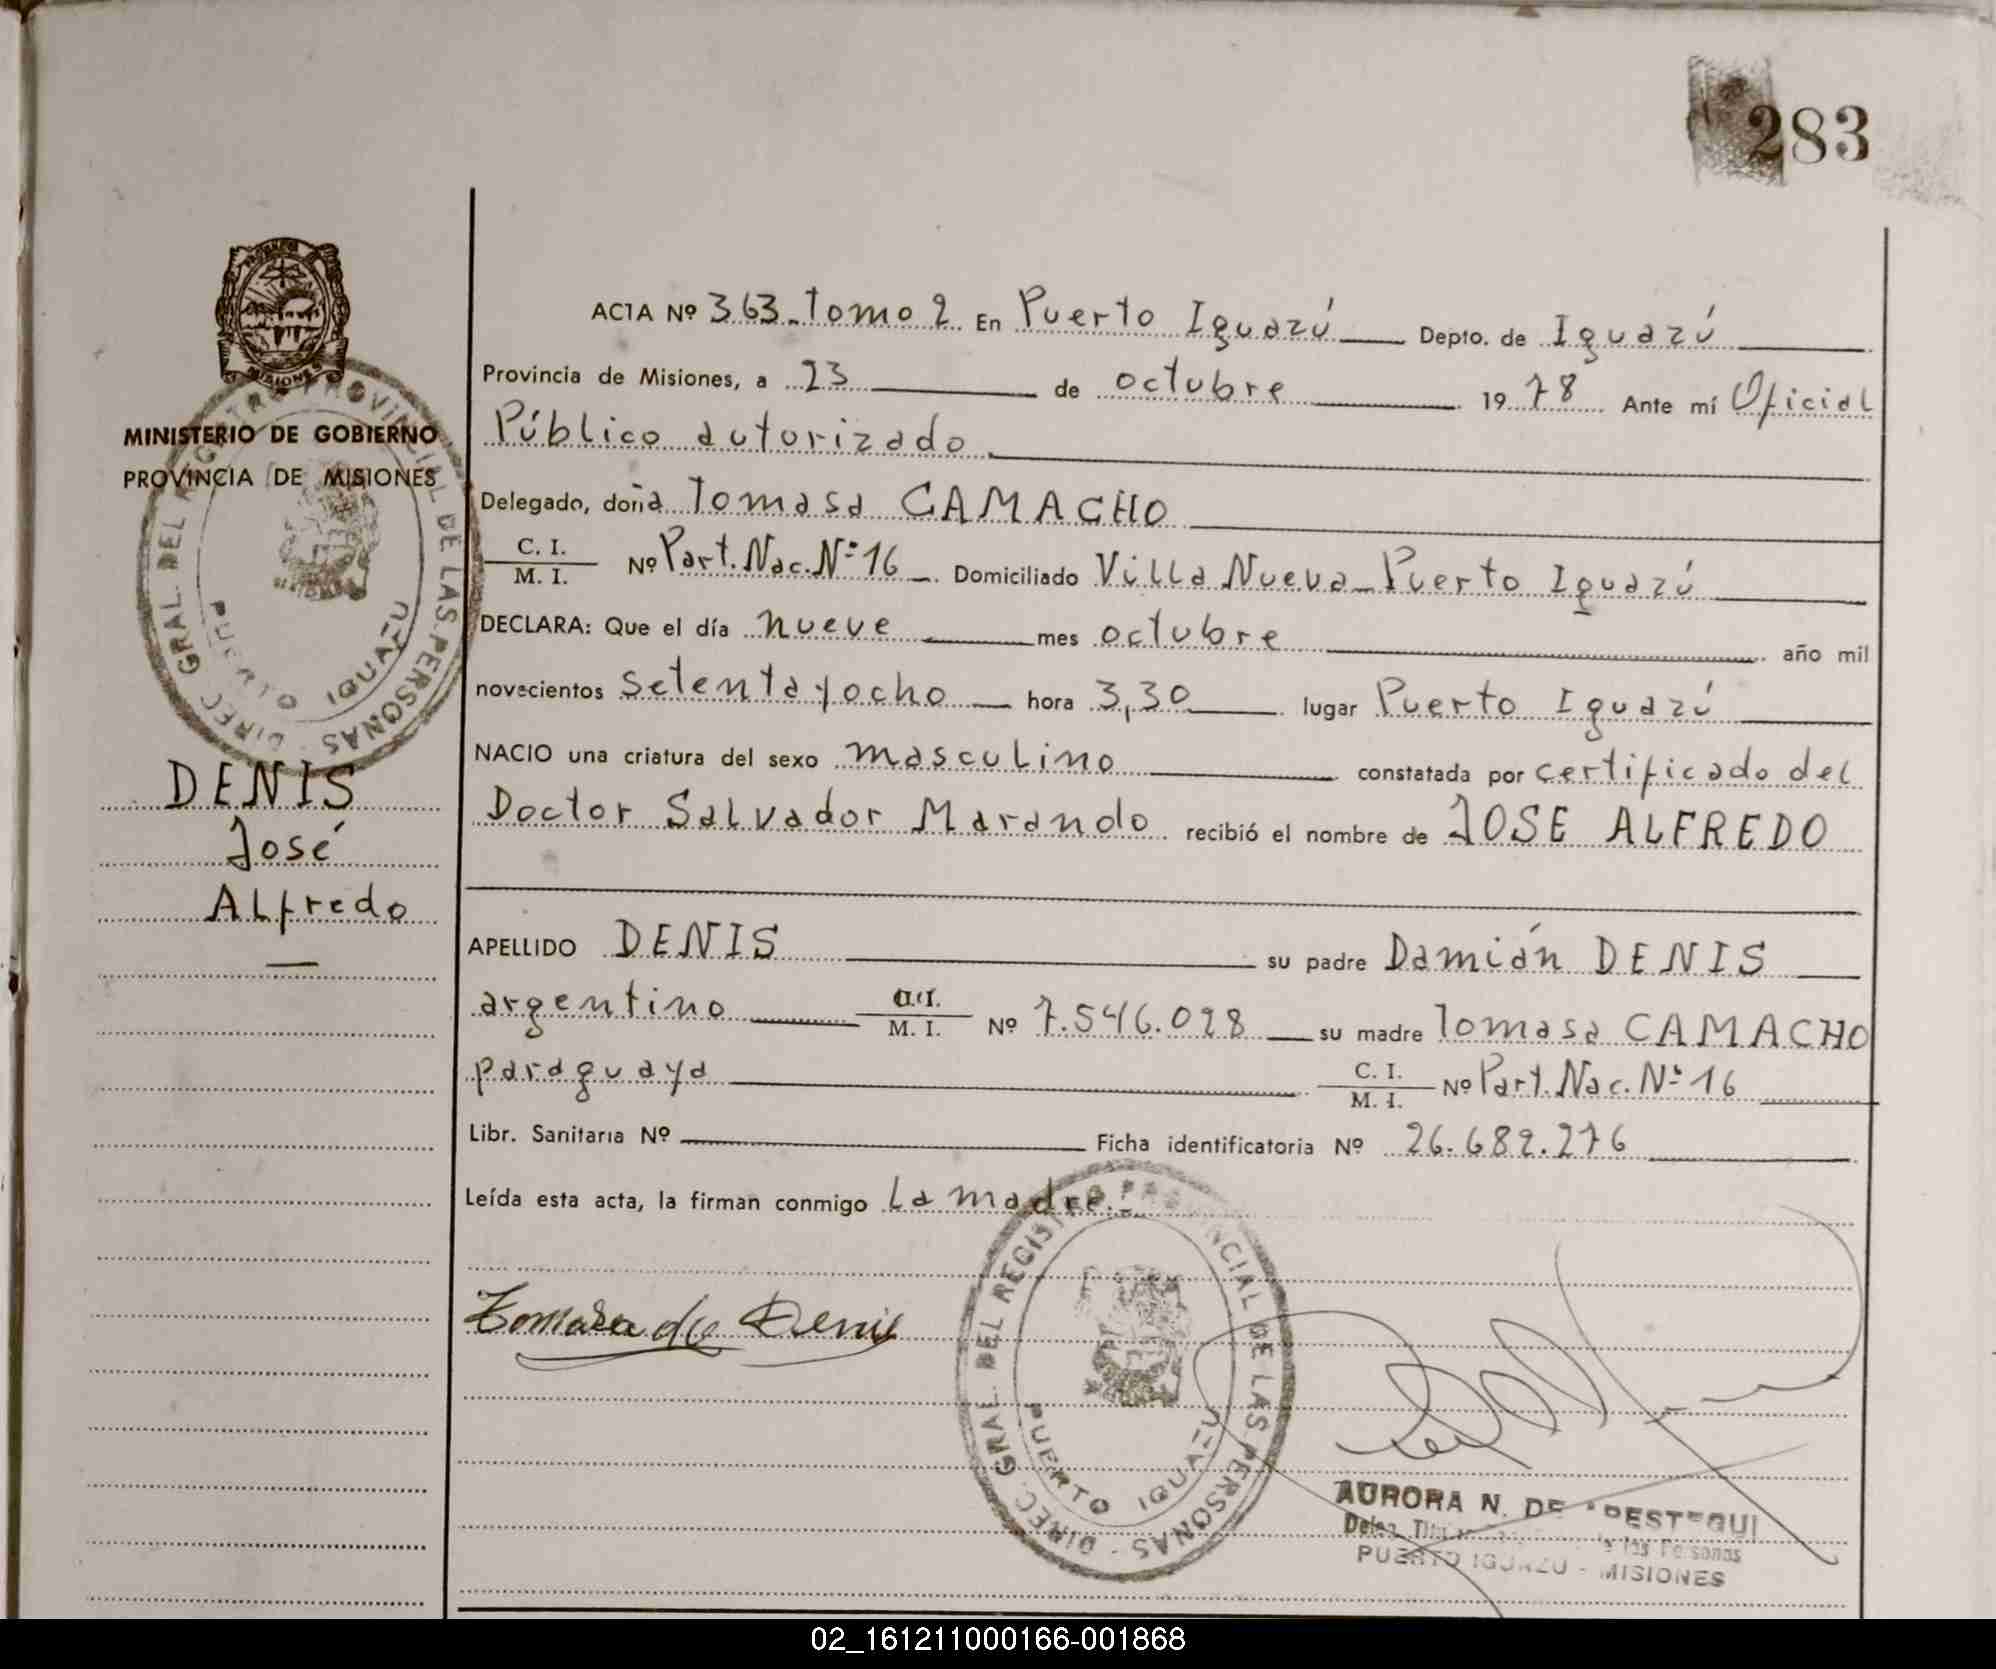 283
ACTA Nº 363 - Tomo 2 En Puerto Iguazú Depto. de Iguazú
Provincia de Misiones, a 23 de octubre 1978 Ante mí Oficial
Público autorizado
Delegado, doña Tomasa CAMACHO
C. I.
M. I. Nº Part. Nac. Nº 16 - Domiciliado Villa Nueva - Puerto Iguazú
DECLARA: Que el día nueve mes octubre año mil
novecientos setenta y ocho hora 3,30 lugar Puerto Iguazú
NACIO una criatura del sexo masculino constatada por certificado del
Doctor Salvador Marando recibió el nombre de JOSE ALFREDO
APELLIDO DENIS su padre Damián DENIS
argentino M. I. Nº 7.546.028 su madre Tomasa CAMACHO
paraguaya C. I.
M. I. Nº Part. Nac. Nº 16
Libr. Sanitaria Nº Ficha identificatoria Nº 26.689.276
Leída esta acta, la firman conmigo la madre.-
Tomasa de Denis
AURORA N. DE
PUERTO IGUAZU - MISIONES
DIREC. GRAL. DEL REGISTRO PROVINCIAL DE LAS PERSONAS
PUERTO IGUAZU
MISIONES
MINISTERIO DE GOBIERNO
PROVINCIA DE MISIONES
DIREC. GRAL. DEL REGISTRO PROVINCIAL DE LAS PERSONAS
PUERTO IGUAZU
DENIS
José
Alfredo
02_161211000166-001868